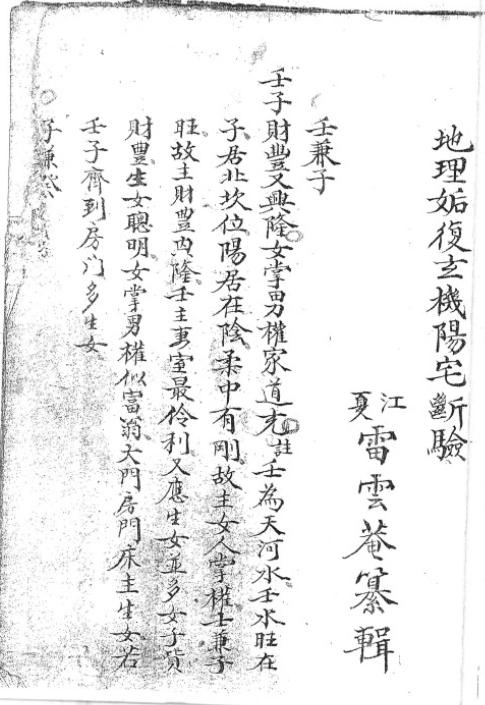 地理姤復玄機陽宅斷驗
江夏
雷雲菴纂輯
壬兼子
壬子財豐又興隆女掌男權家道充註壬為天河水壬水旺在
子居北坎位陽居在陰柔中有剛故主女人掌權壬兼子
旺故主財豐興隆壬主妻室最伶利又應生女並多女子貨
財豊生女聰明女掌男權似富翁大門房門床主生女若
壬子齊到房门多生女
子兼癸